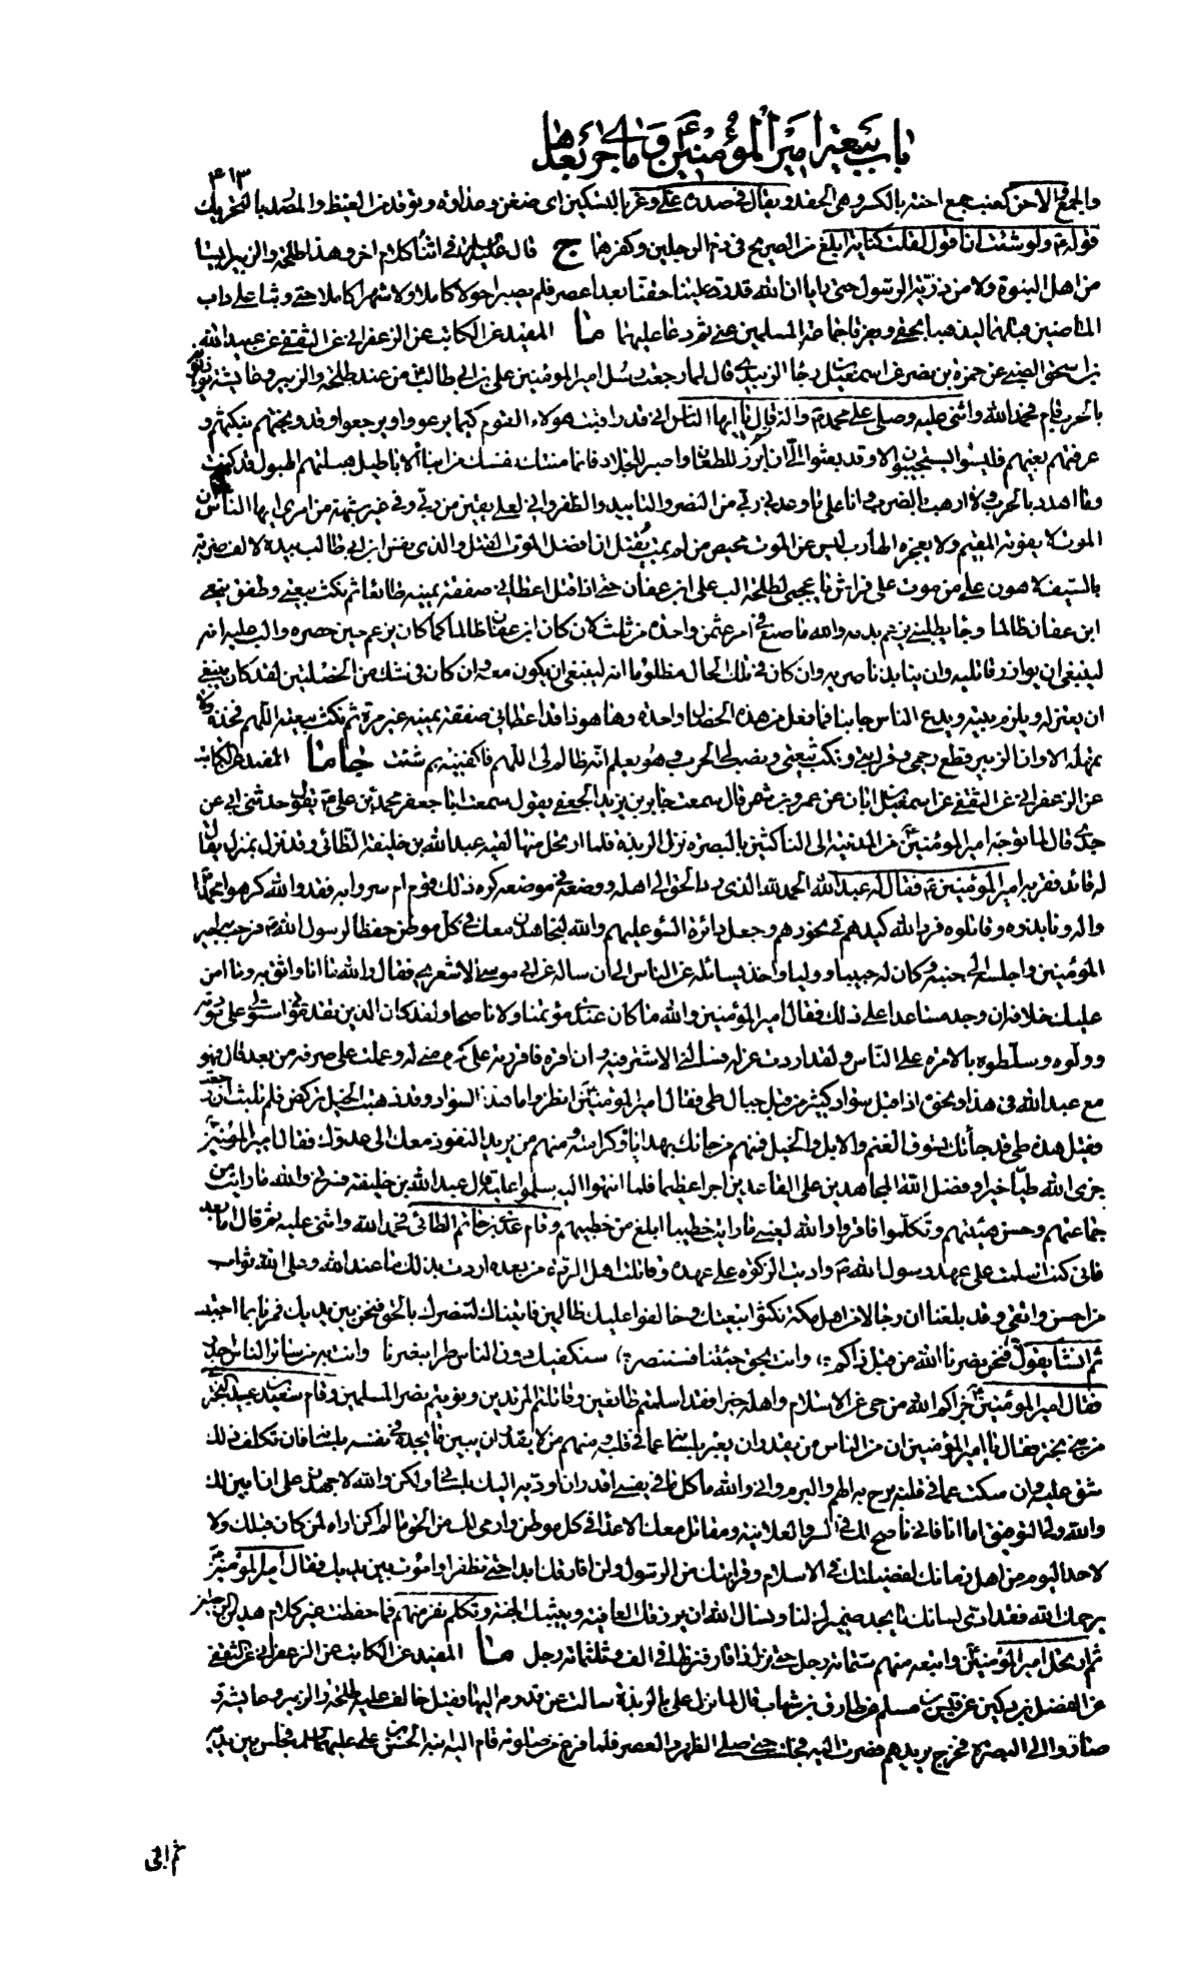 باب بيعة أمير المؤمنين ع وما جرى بعدها
٤١٣
والجمع الاحن كعنب جمع احنة بالكسر وهى الحقد ويقال فى صدره على وغر بالتسكين اى ضغن وعداوة وتوقد من الغيظ والمصدر بالتحريك
قوله ع ولو شئت ان اقول لقلت كناية ابلغ من الصريح فى ذم الرجلين وكفرهما ج قال فى اثناء كلام اخر وهذا طلحة والزبير ليسا
من اهل النبوة ولا من ذرية الرسول حتى رايا ان الله قد رد علينا حقنا بعد اعصر فلم يصبرا حولا كاملا ولا شهرا كاملا حتى وثبا على داب
الماضين قبلهما ليذهبا بحقى ويفرقا جماعة المسلمين عنى ثم دعا عليهما ما المفيد عن الكاتب عن الزعفرانى عن الثقفى عن عبيد الله
بن اسحق الضبى عن حمزة بن نصر عن اسمعيل بن رجا الزبيدى قال لما رجعت رسل امير المؤمنين على بن ابى طالب من عند طلحة والزبير وعائشة يؤذنونه
بالحرب قام فحمد الله واثنى عليه وصلى على محمد واله ثم قال يا ايها الناس انى قد راقبت هؤلاء القوم كيما يرعووا او يرجعوا وقد وبختهم بنكثهم و
عرفتهم بغيهم فليسوا يستجيبون الا وقد بعثوا الى ان ابرز للطعان واصبر للجلاد فانما منتك نفسك من ابنائنا الاباطيل هبلتهم الهبول قد كنت
وما اهدد بالحرب ولا ارهب بالضرب وانا على ما وعدنى ربى من النصر والتاييد والظفر وانى لعلى يقين من ربى وفى غير شبهة من امرى ايها الناس ان
الموت لا يفوته المقيم ولا يعجزه الهارب ليس عن الموت محيص من لم يمت يقتل ان افضل الموت القتل والذى نفس ابن ابى طالب بيده لالف ضربة
بالسيف لاهون على من موت على فراش يا عجبى لطلحة الب على ابن عفان حتى اذا قتل اعطانى صفقة يمينه طائعا ثم نكث بيعتى وطفق ينعى
ابن عفان ظالما وجاء يطلبنى يزعم بدمه والله ما صنع فى امر عثمن واحدة من ثلث لان كان ابن عفان ظالما كما كان يزعم حين حصره والب عليه انه
لينبغى ان يوازر قاتليه وان ينابذ ناصريه وان كان فى تلك الحال مظلوما انه لينبغى ان يكون معه وان كان فى شك من الخصلتين لقد كان ينبغى
ان يعتزله ويلزم بيته ويدع الناس جانبا فما فعل من هذه الخصال واحدة وها هو ذا قد اعطانى صفقة يمينه غير مرة ثم نكث بيعته اللهم فخذه ولا
تمهله الا وان الزبير قطع رحمى وقرابتى ونكث بيعتى ونصب لى الحرب وهو يعلم انه ظالم لى اللهم فاكفنيه بم شئت جا ما المفيد عن الكاتب
عن الزعفرانى عن الثقفى عن اسمعيل بن ابان عن عمرو بن شمر قال سمعت جابر بن يزيد الجعفى يقول سمعت ابا جعفر محمد بن على يقول حدثنى ابى عن
جدى قال لما توجه امير المؤمنين من المدينة الى الناكثين بالبصرة نزل الربذة فلما ارتحل منها لقيه عبد الله بن خليفة الطائى وقد نزل بمنزل يقال
له قائد فقربه امير المؤمنين فقال له عبد الله الحمد لله الذى رد الحق الى اهله ووضعه فى موضعه كره ذلك قوم ام سروا به فقد والله كرهوا محمدا
واله ونابذوه وقاتلوه فرد الله كيدهم فى نحورهم وجعل دائرة السوء عليهم والله لنجاهدن معك فى كل موطن حفظا لرسول الله فرحب به امير
المؤمنين واجلسه الى جنبه وكان له حبيبا ووليا واخذ يسائله عن الناس الى ان ساله عن ابى موسى الاشعرى فقال والله ما انا واثق به وما امن
عليك خلافه ان وجد مساعدا على ذلك فقال امير المؤمنين والله ما كان عندى مؤتمنا ولا ناصحا ولقد كان الذين تقدمونى استولوا على مودته
وولوه وسلطوه بالامرة على الناس ولقد اردت عزله فسئلنى الاشتر فيه ان اقره فاقررته على كره منى له وعملت على صرفه من بعد قال فهو
مع عبد الله فى هذا ونحوه اذ اقبل سواد كثير من قبل جبال طى فقال امير المؤمنين انظروا ما هذا السواد وقد ذهبت الخيل تركض فلم تلبث ان رجعت
فقيل هذه طى قد جائتك تسوق الغنم والابل والخيل فمنهم من جائك بهداياه وكرامته ومنهم من يريد النفوذ معك الى عدوك فقال امير المؤمنين
جزى الله طيا خيرا وفضل الله المجاهدين على القاعدين اجرا عظيما فلما انتهوا اليه سلموا عليه قال عبد الله بن خليفة فسرنى والله ما رايت من
جماعتهم وحسن هيئتهم وتكلموا فاقروا والله لعينى ما رايت خطيبا ابلغ من خطيبهم وقام عدى بن حاتم الطائى فحمد الله واثنى عليه ثم قال اما بعد
فانى كنت اسلمت على عهد رسول الله وادبت الزكوة على عهده وقاتلت اهل الردة من بعده اردت بذلك ما عند الله وعلى الله ثواب
من احسن واتقى وقد بلغنا ان رجالا من اهل مكة نكثوا بيعتك وخالفوا عليك ظالمين فاتيناك لننصرك بالحق فنحن بين يديك فمرنا بما احببت
ثم انشا يقول فنحن نصرنا الله من قبل ذاكم وانت بحق جئتنا فستنصر سنكفيك دون الناس طرا بنصرنا وانت به من سائر الناس اجدر
فقال امير المؤمنين جزاكم الله من حى عن الاسلام واهله خيرا فقد اسلمتم طائعين وقاتلتم المرتدين ونويتم نصر المسلمين وقام سعيد بن عبيد البخترى
من بنى بختر فقال يا امير المؤمنين ان من الناس من يقدر ان يعبر بلسانه عما فى قلبه ومنهم من لا يقدر ان يبين ما يجده فى نفسه بلسانه فان تكلف ذلك
شق عليه وان سكت عما فى قلبه برح به الهم والبرم وانى والله ما كل ما فى نفسى اقدر ان اؤديه اليك بلسانى ولكن والله لاجهدن على ان ابين لك
والله ولى التوفيق اما انا فانى ناصح لك فى السر والعلانية ومقاتل معك الاعداء فى كل موطن وارى لك من الحق ما لم اكن اراه لمن كان قبلك ولا
لاحد اليوم من اهل زمانك لفضيلتك فى الاسلام وقرابتك من الرسول ولن افارقك ابدا حتى تظفر او اموت بين يديك فقال امير المؤمنين
يرحمك الله فقد ادى لسانك ما يجد ضميرك لنا ونسال الله ان يرزقك العافية ويثيبك الجنة وتكلم نفر منهم فما حفظت غير كلام هذين الرجلين
ثم ارتحل امير المؤمنين واتبعه منهم ستمائة رجل حتى نزل ذا قار فنزلها فى الف وثلثمائة رجل ما المفيد عن الكاتب عن الزعفرانى عن الثقفى
عن الفضل بن دكين عن قيس بن مسلم عن طارق بن شهاب قال لما نزل على بالربذة سالت عن قدومه الينا فقيل خالف عليه طلحة والزبير وعائشة و
صاروا الى البصرة فخرج يريدهم فصرت اليه فجلست حتى صلى الظهر والعصر فلما فرغ من صلوته قام اليه ابنه الحسن بن على عليهما السلم فجلس بين يديه
ثم ابى